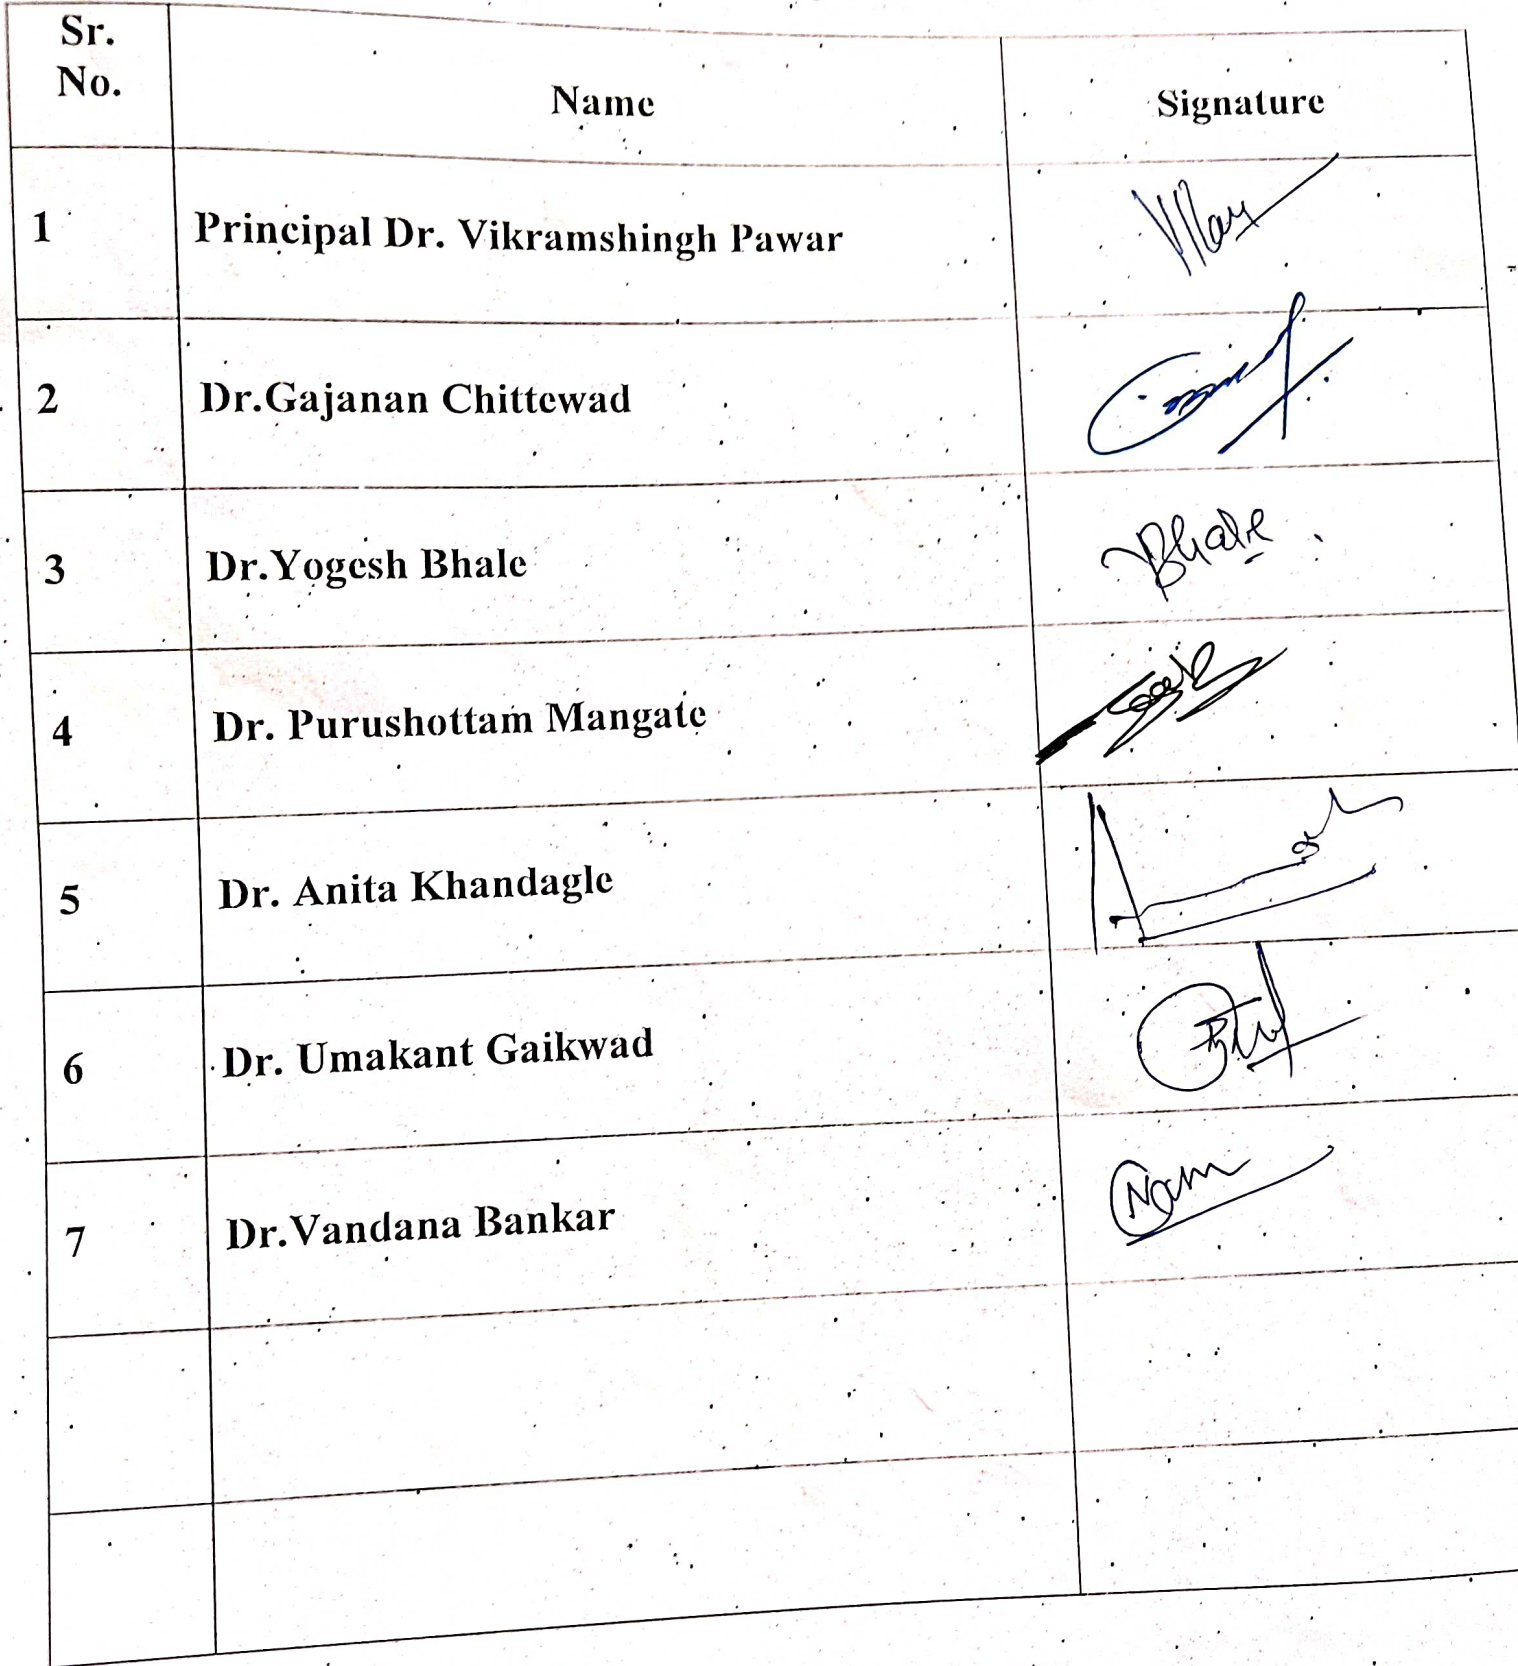 Sr.
No.
Name
Signature
1
Principal Dr. Vikramshingh Pawar
2
Dr.Gajanan Chittewad
3
Dr.Yogesh Bhale
Bhale
4
Dr. Purushottam Mangate
5
Dr. Anita Khandagle
6
Dr. Umakant Gaikwad
7
Dr.Vandana Bankar